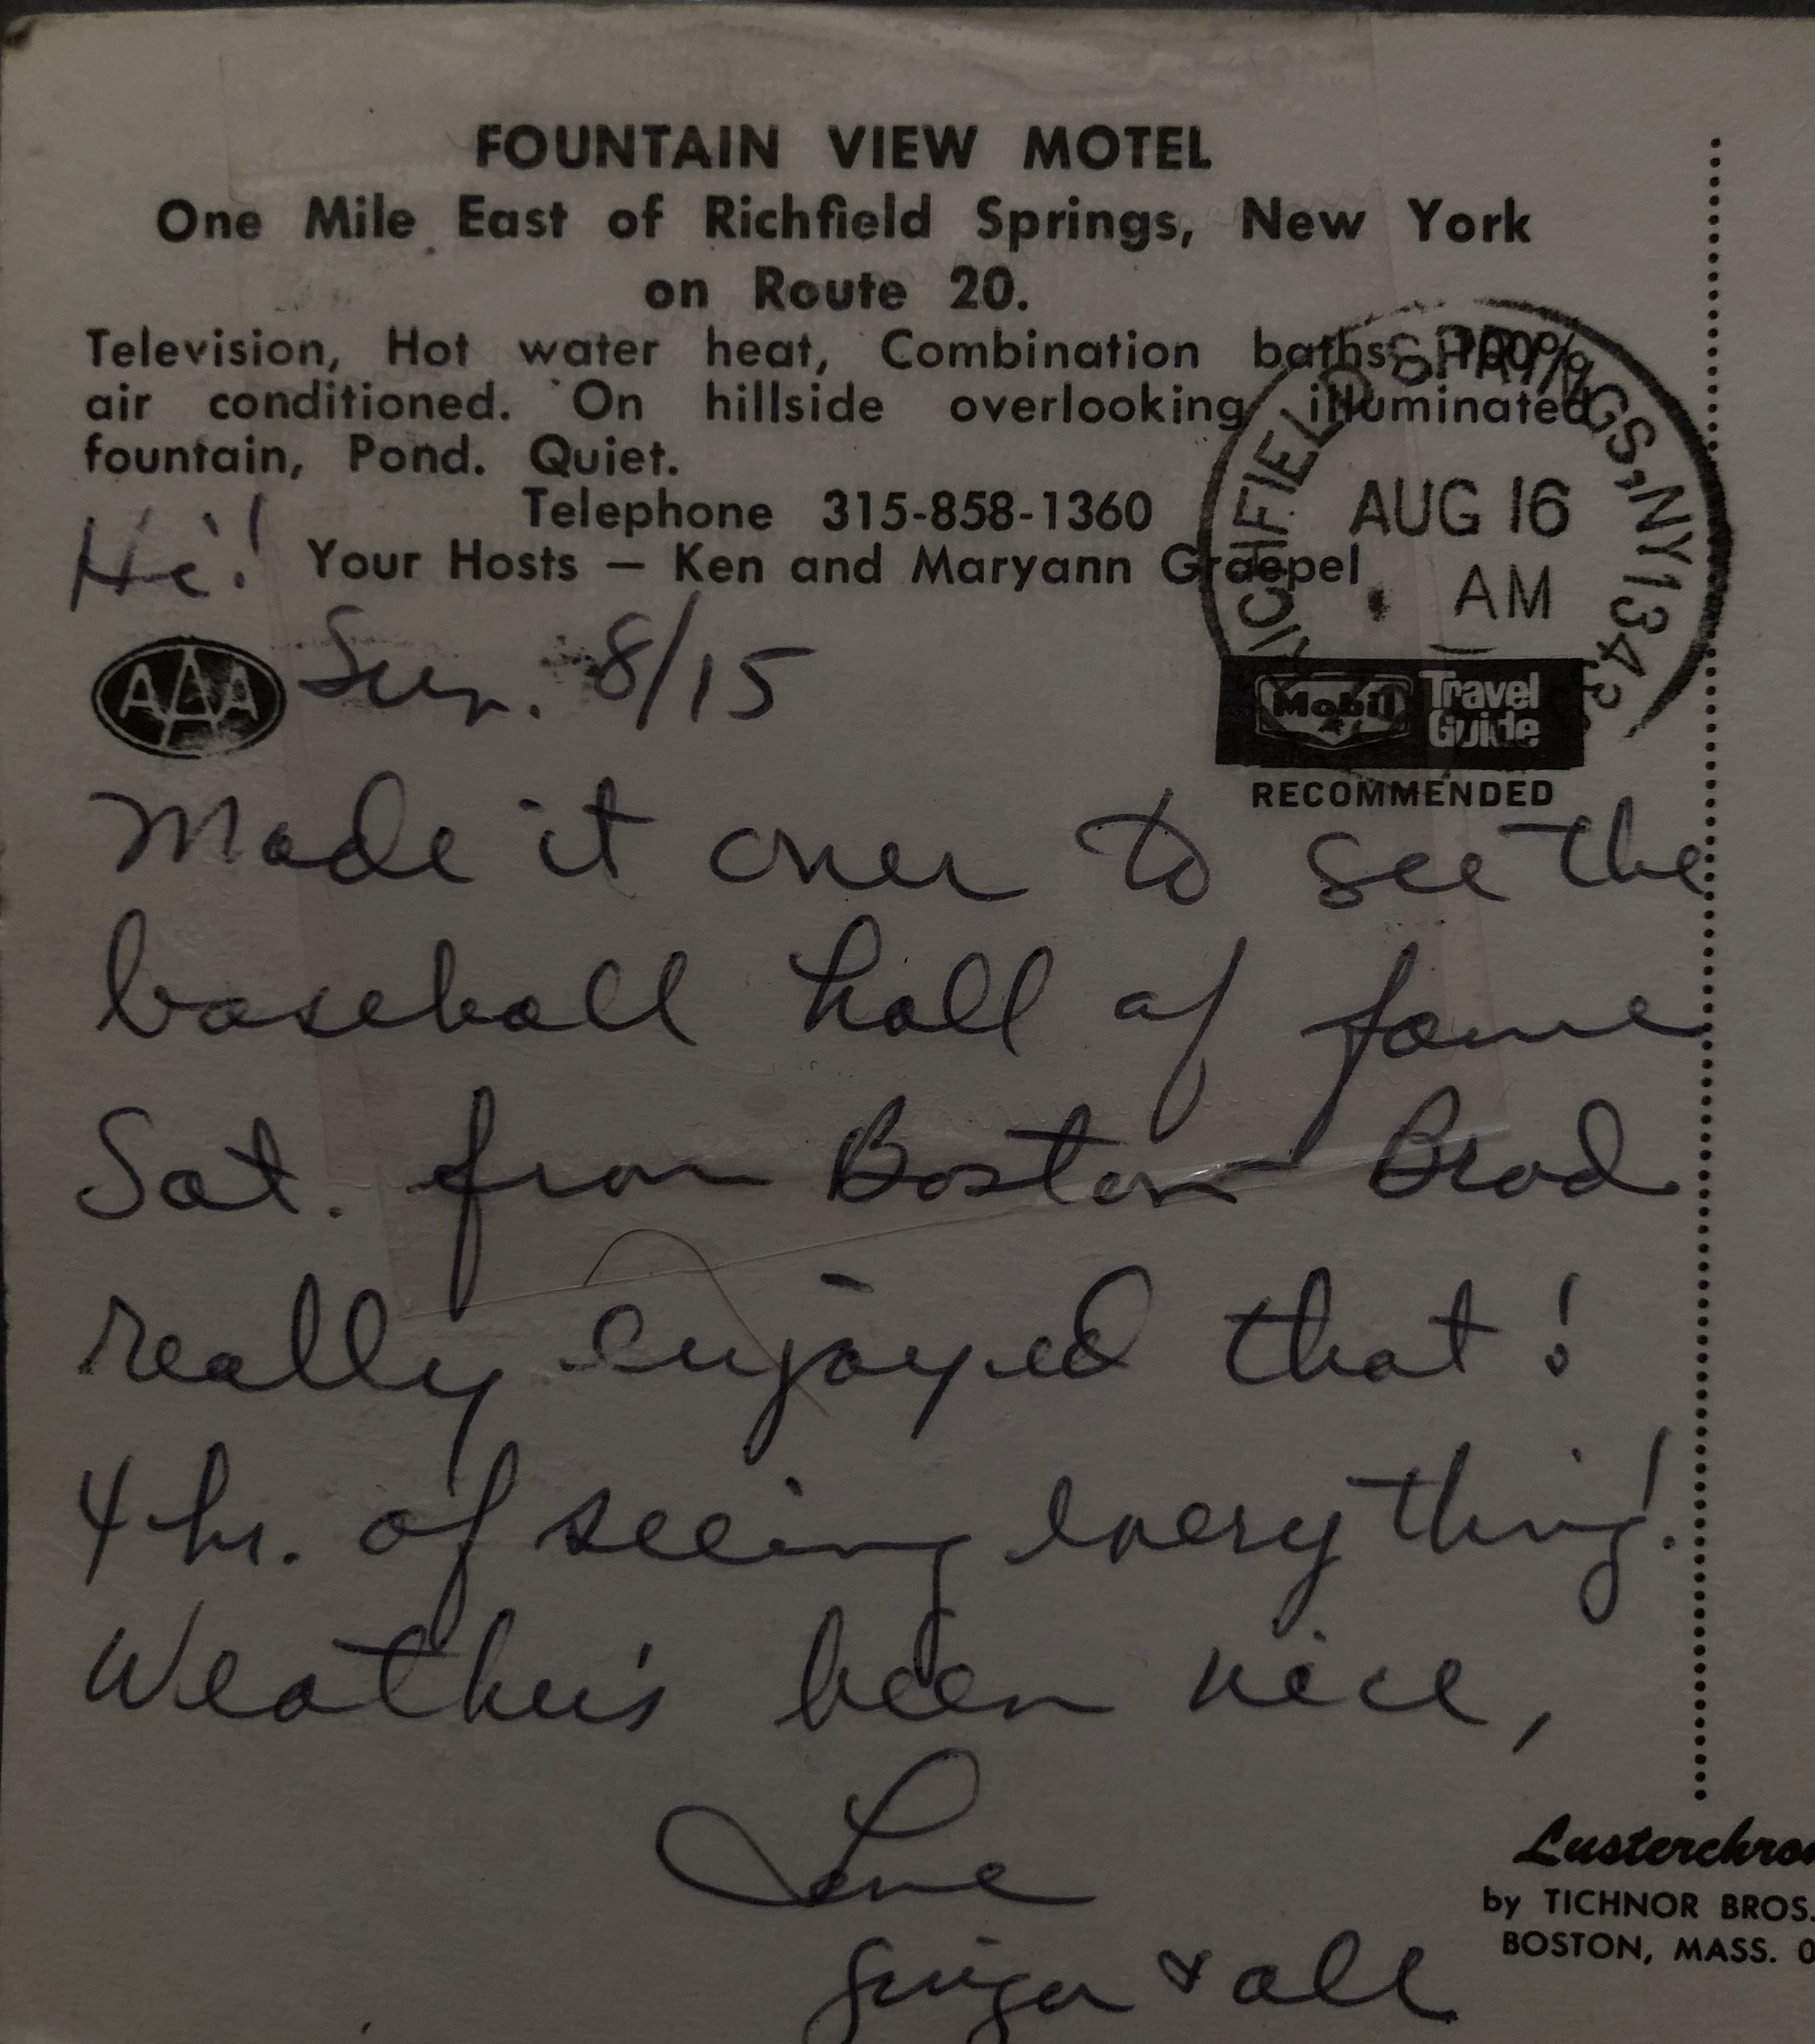 FOUNTAIN VIEW MOTEL
One Mile East of Richfield Springs, New York
on Route 20.
Television, Hot water heat, Combination baths, 100%
air conditioned. On hillside overlooking illuminated
fountain, Pond. Quiet.
Telephone 315-858-1360
Your Hosts — Ken and Maryann Graepel
RICHFIELD SPRINGS, NY 134
AUG 16
AM
Hi!
AAA
Sun. 8/15
Mobil Travel Guide
RECOMMENDED
Made it over to see the
baseball hall of fame
Sat. from Boston Brad
really enjoyed that!
4 hr. of seeing everything!
Weather's been nice,
Love
Ginger & all
Lusterchro
by TICHNOR BROS.
BOSTON, MASS. 0